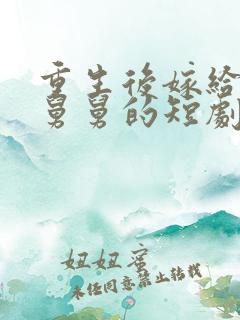 重生後嫁給
舅舅的短劇
妞妞蜜
未經同意禁止轉載